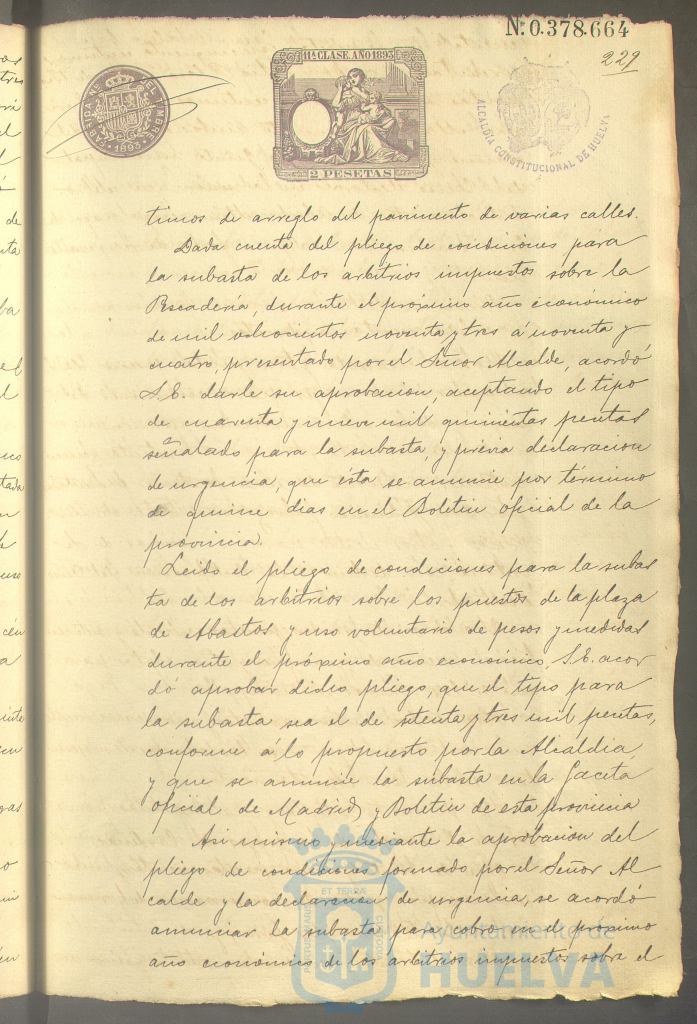 N.º 0.378.664
229
11ª CLASE. AÑO 1893
FABRICA NAL DEL TIMBRE
1893
ALCALDIA CONSTITUCIONAL DE HUELVA
2 PESETAS
timos de arreglo del pavimento de varias calles.
Dada cuenta del pliego de condiciones para
la subasta de los arbitrios impuestos sobre la
Pescadería, durante el próximo año económico
de mil ochocientos noventa y tres á noventa y
cuatro, presentado por el Señor Alcalde, acordó
S.E. darle su aprobacion, aceptando el tipo
de cuarenta y nueve mil quinientas pesetas
señalado para la subasta, y prévia declaracion
de urgencia, que ésta se anuncie por término
de quince dias en el Boletin oficial de la
provincia.
Leido el pliego de condiciones para la subas
ta de los arbitrios sobre los puestos de la plaza
de Abastos y uso voluntario de pesos y medidas
durante el próximo año económico, S.E. acor
dó aprobar dicho pliego, que el tipo para
la subasta sea el de setenta y tres mil pesetas,
conforme á lo propuesto por la Alcaldia,
y que se anuncie la subasta en la Gaceta
oficial de Madrid y Boletin de esta provincia
Asi mismo y mediante la aprobacion del
pliego de condiciones formado por el Señor Al
calde y la declaracion de urgencia, se acordó
anunciar la subasta para cobro en el próximo
año económico de los arbitrios impuestos sobre el
Ayuntamiento de
HUELVA